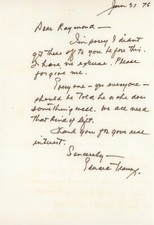 Jan 31 76
Dear Raymond -
I'm sorry I didn't
get these off to you before this.
I have no excuse. Please
forgive me.
Everyone - yes everyone -
should be told he or she does
something well. We all need
that kind of lift.
Thank you for your real
interest.
Sincerely -
Edward